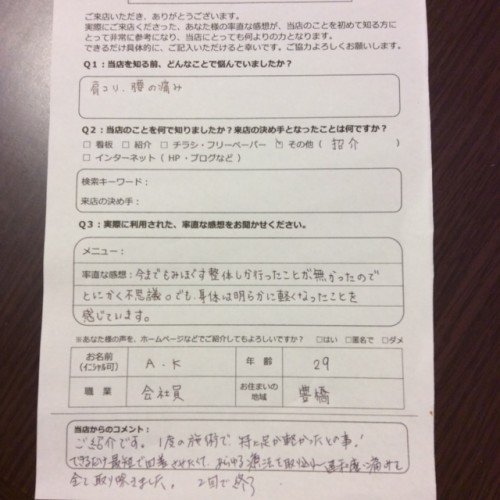 ご来店いただき、ありがとうございます。
実際にご来店くださった、あなた様の率直な感想が、当店のことを初めて知る方に
とって非常に参考になり、当店にとっても何よりの力となります。
できるだけ具体的に、ご記入いただけると幸いです。ご協力よろしくお願いします。
Q1:当店を知る前、どんなことで悩んでいましたか?
肩コリ、腰の痛み
Q2:当店のことを何で知りましたか?来店の決め手となったことは何ですか?
□ 看板 □ 紹介 □ チラシ・フリーペーパー ☑ その他( 紹介 )
□ インターネット(HP・ブログなど)
検索キーワード:
来店の決め手:
Q3:実際に利用された、率直な感想をお聞かせください。
メニュー:
率直な感想:今までもみほぐす整体しか行ったことが無かったので
とにかく不思議。でも、身体は明らかに軽くなったことを
感じています。
※あなた様の声を、ホームページなどでご紹介してもよろしいですか? □はい □匿名で □ダメ
お名前(イニシャル可) A.K 年齢 29
職業 会社員 お住まいの地域 豊橋
当店からのコメント:
ご紹介です。1度の施術で、特に足が軽かったとの事!
できるだけ最短で改善させたくて、あらゆる療法を取り入れ
全て取り除きました。2回で終了